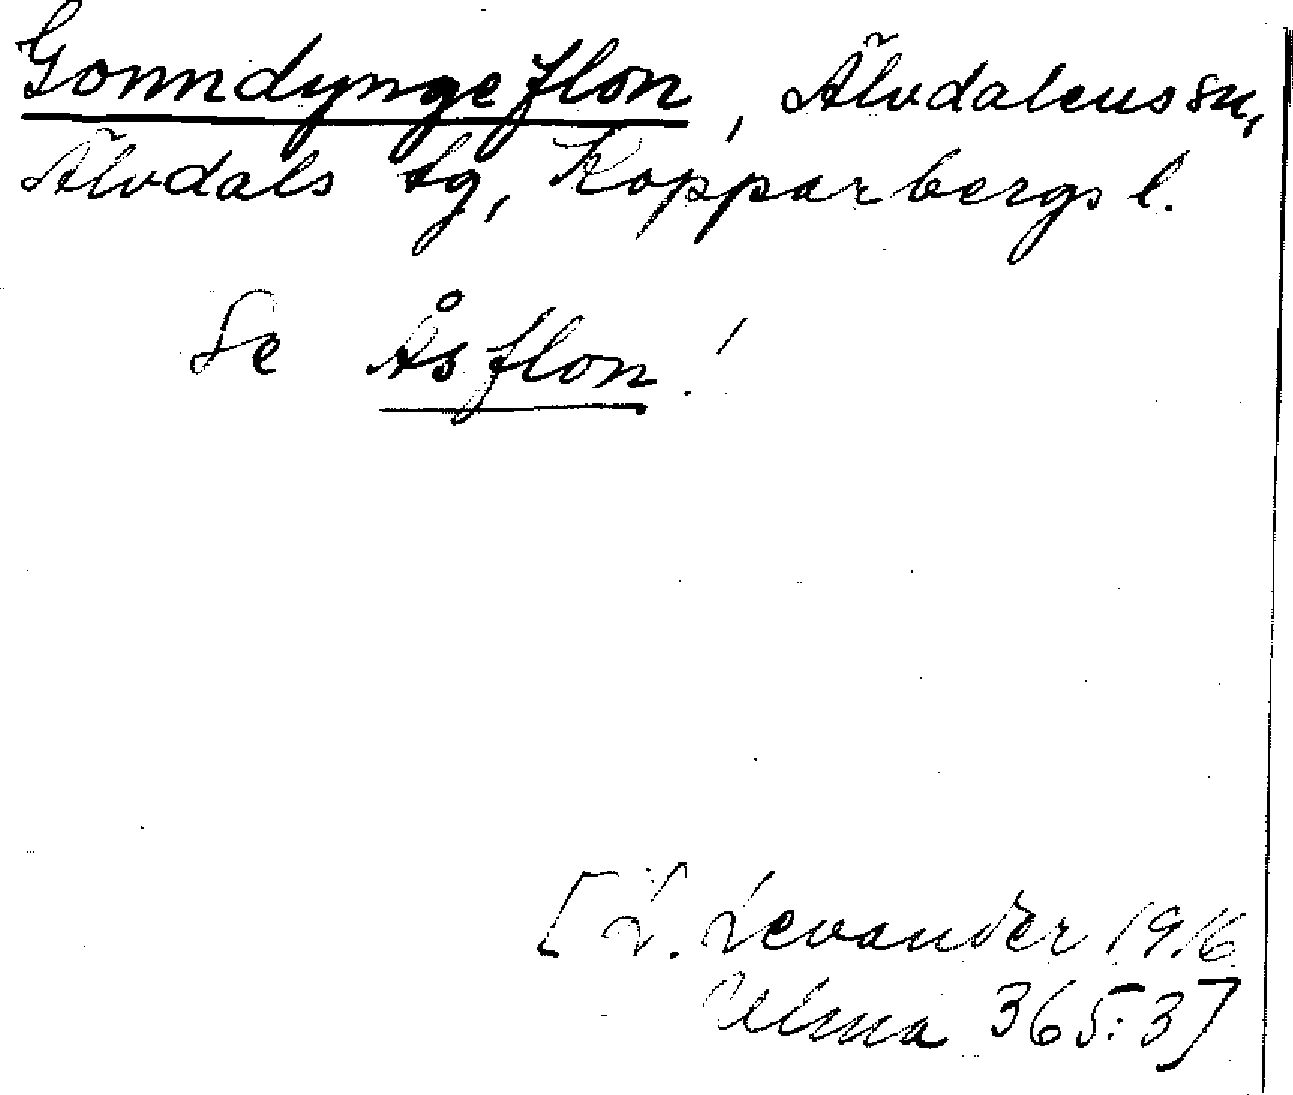 Gonndyngeflon, Älvdalens sn,
Älvdals tg, Kopparbergs l.
Se Åsflon!
[L. Levander 1916
Ulma 365:3]